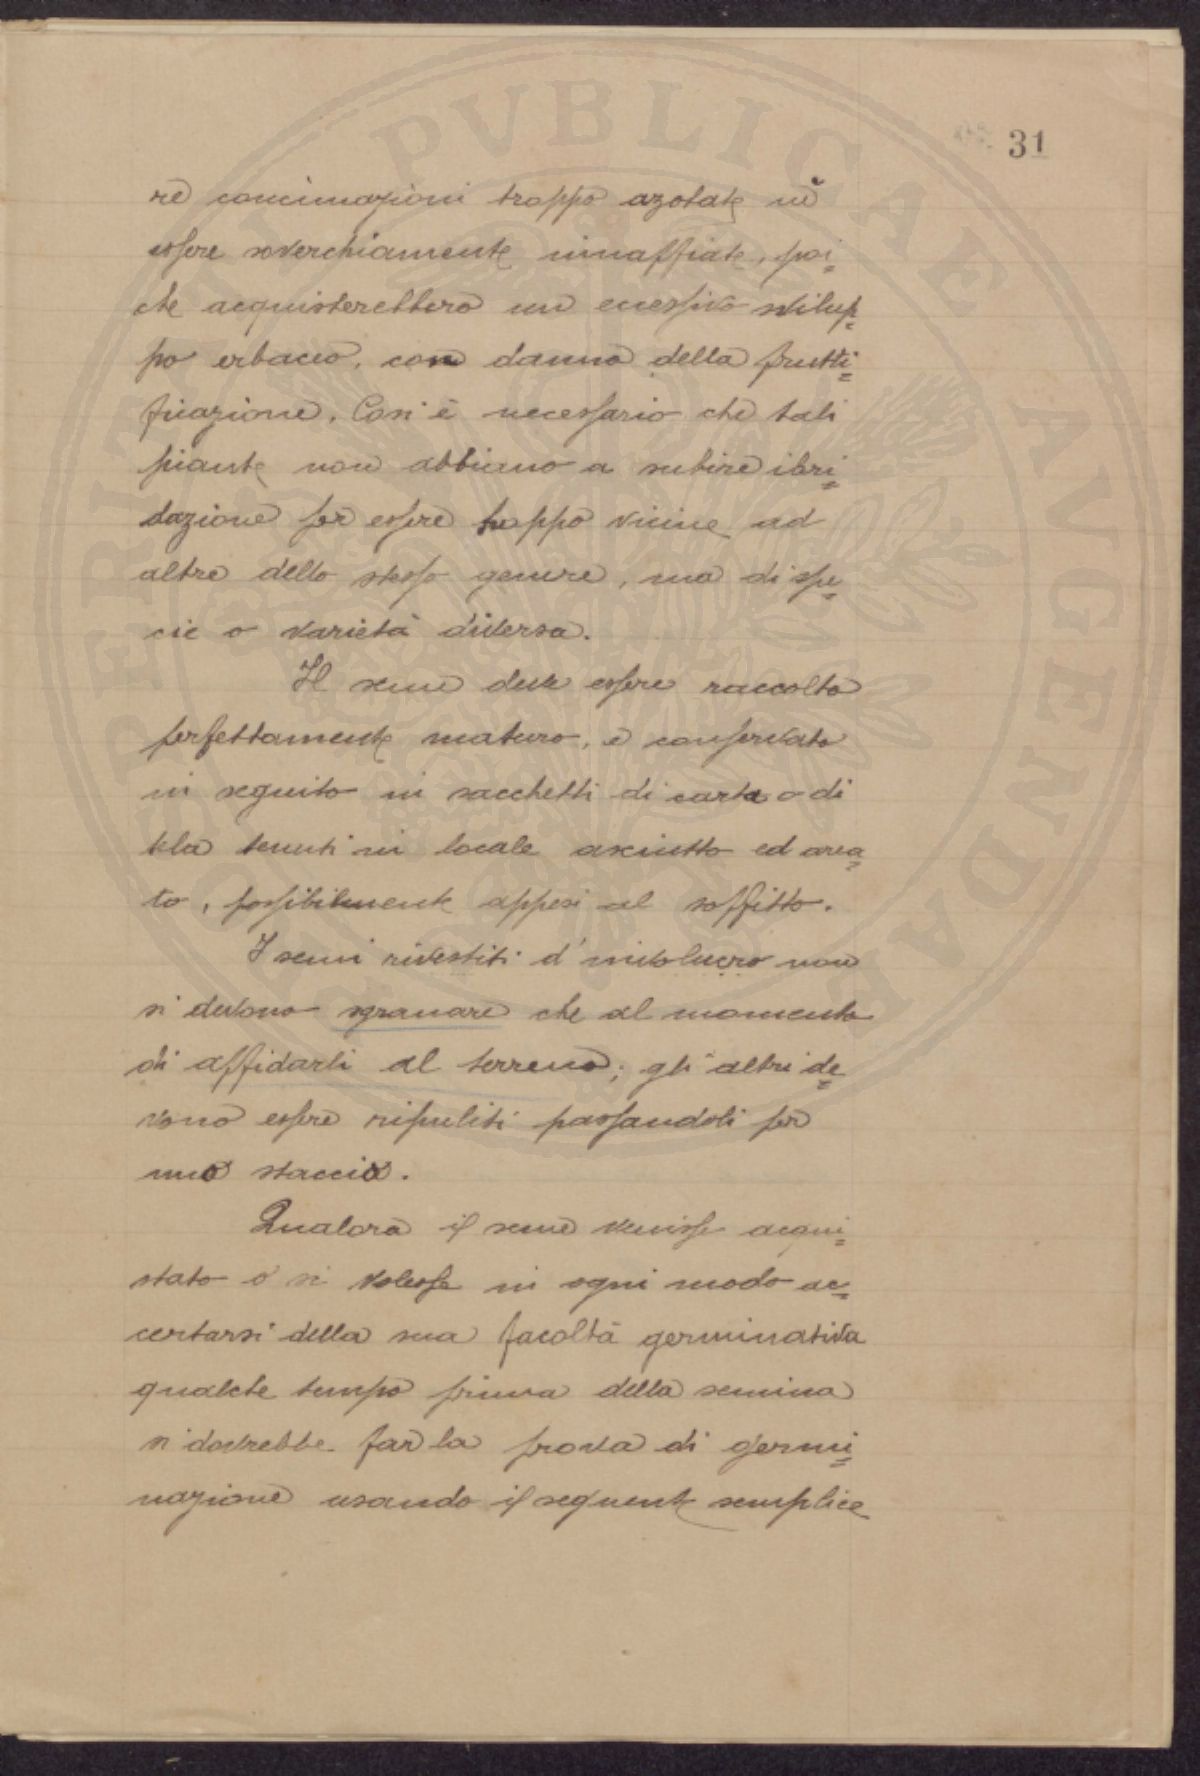 31
re concimazioni troppo azotate nè
essere soverchiamente innaffiate, poi=
che acquisterebbero un eccessivo svilup=
po erbaceo, con danno della frutti=
ficazione. Così è necessario che tali
piante non abbiano a subire ibri=
dazione per essere troppo vicine ad
altre dello stesso genere, ma di spe=
cie o varietà diversa.
Il seme deve essere raccolto
perfettamente maturo, e conservato
in seguito in sacchetti di carta o di
tela tenuti in locale asciutto ed area=
to, possibilmente appesi al soffitto.
I semi rivestiti d'involucro non
si devono sgranare che al momento
di affidarli al terreno; gli altri de=
vono essere ripuliti passandoli per
uno staccio.
Qualora il seme venisse acqui=
stato o si volesse in ogni modo ac=
certarsi della sua facoltà germinativa
qualche tempo prima della semina
si dovrebbe far la prova di germi=
nazione usando il seguente semplice
PERITVRA PVBLICAE AVGENDAE